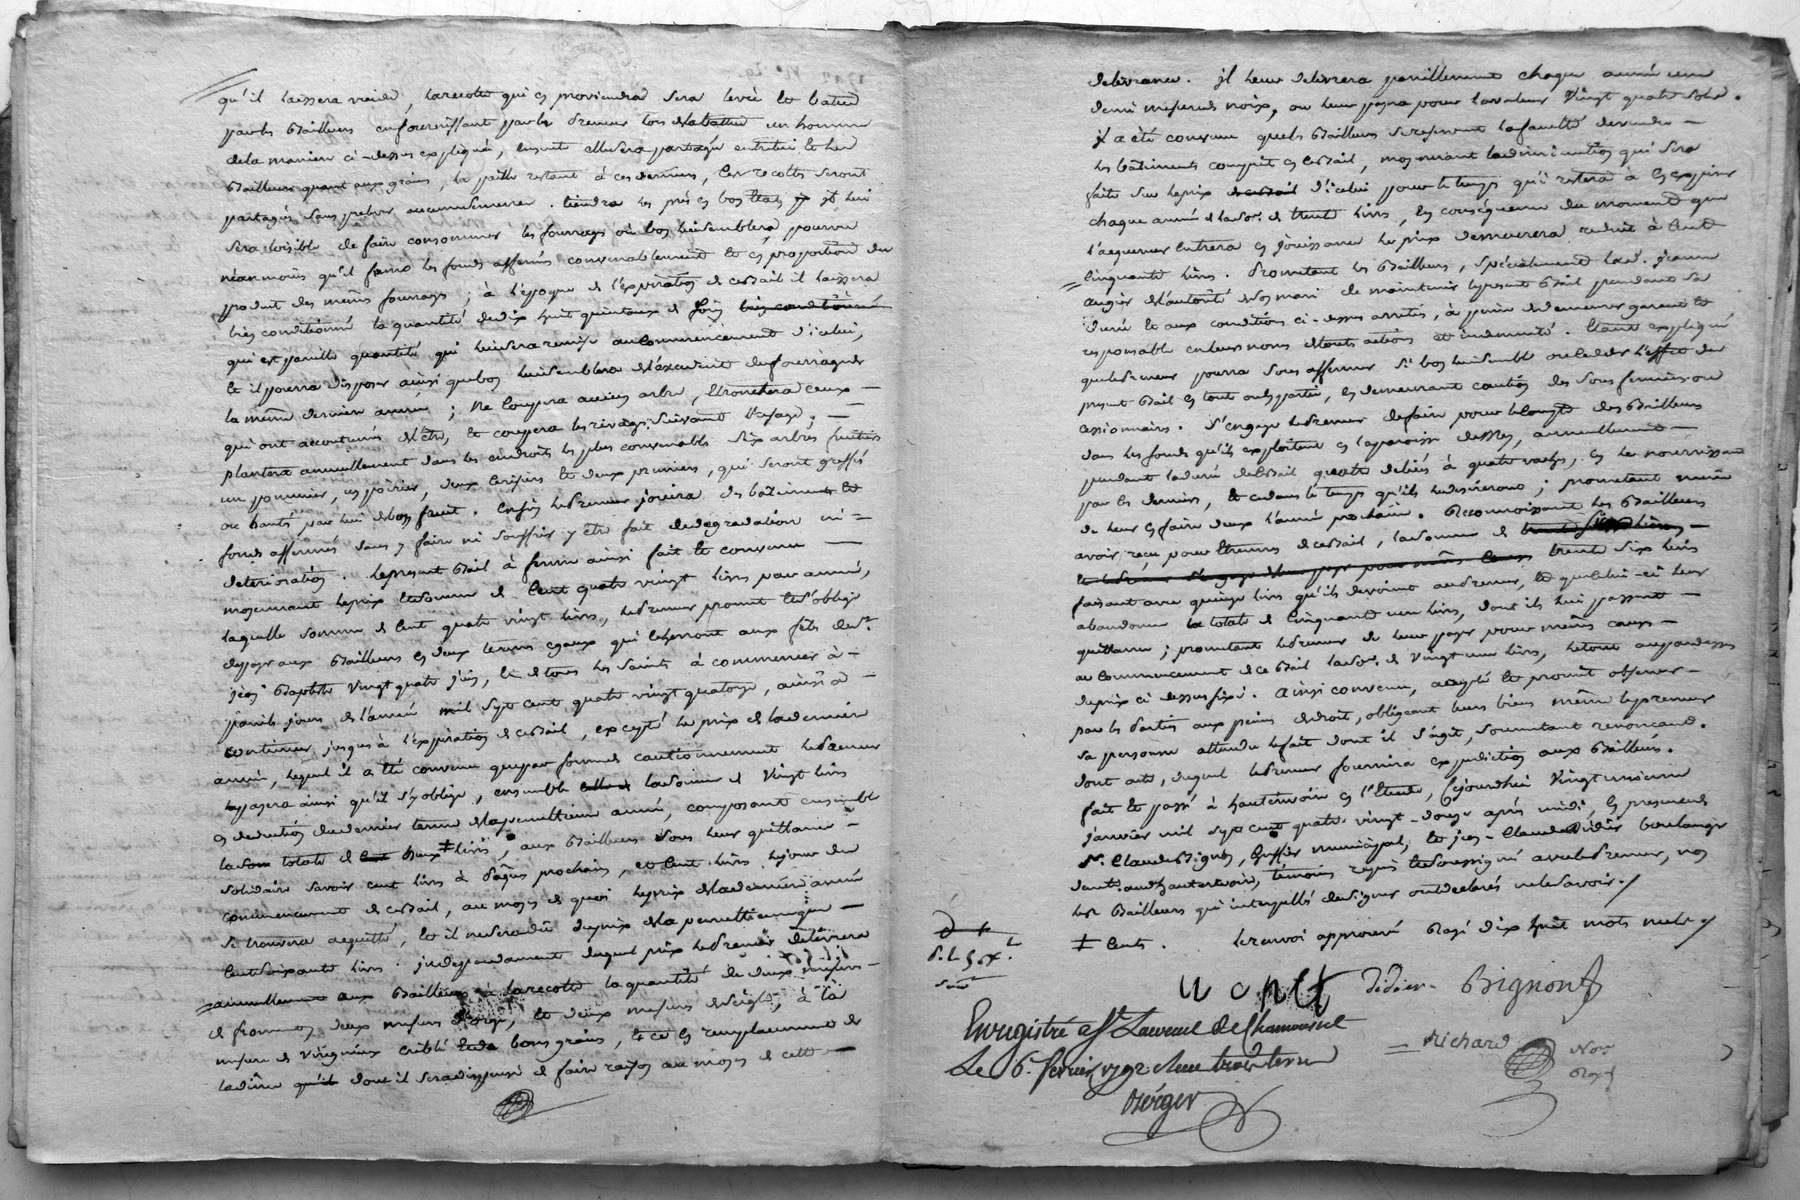 qu'il laissera vuide, la recolte qui en proviendra sera levée et batue
par les Bailleurs en fournissant par le Preneur lors un homme
de la maniere ci-dessus expliquée, ensuite elle sera partagée entre lui et les
Bailleurs quant aux grains, la paille restant à ces derniers, les recoltes seront
partagés sans prelever aucune semence. tiendra les prés en bon état, il lui
sera loisible de faire consommer les fourrages où bon lui semblera pourvu
néanmoins qu'il fume les fonds affermés convenablement et en proportion du
produit des mêmes fourrages ; à l'époque de l'expiration de ce Bail il laissera
bien conditionné la quantité de dix huit quintaux de foin
qui est pareille quantité qui lui sera remise au commencement d'icelui,
et il pourra disposer ainsi que bon lui semblera de l'excedent des fourrages
la même derniere année ; Ne coupera aucun arbre, ceux
qui ont accoutumés d'être, et coupera les rivages suivant l'usage ;
plantera annuellement dans les endroits les plus convenables six arbres fruitiers
un pommier, un poirier, deux cerisiers et deux pruniers, qui seront greffés
ou hantés par lui de bon fruit. Enfin le Preneur jouira des bâtiments et
fonds affermés sans y faire ni souffrir y être fait de dégradation ni
déterioration. Le present Bail à ferme ainsi fait et convenu
moyennant le prix et somme de Cent quatre vingt livres par année,
laquelle somme de Cent quatre vingt livres, le Preneur promet et s'oblige
de payer aux Bailleurs en deux termes egaux qui echerront aux fêtes de St
Jean Baptiste vingt quatre juin, et de tous les Saints à commencer à
pareils jours de l'année mil sept cent quatre vingt quatorze, ainsi à
continuer jusques à l'expiration de ce Bail, excepté le prix de la derniere
année, lequel il a été convenu que par forme de cautionnement le Preneur
payera ainsi qu'il s'y oblige, ensemble la somme de Vingt livres
en deduction du dernier terme de la penultieme année, composant ensemble
la som totale de deux ‡ livres, aux Bailleurs sous leur quittance
solidaire savoir cent livres à Pâques prochain, et Cent livres le jour du
commencement de ce Bail, au moyen de quoi le prix de la derniere année
se trouvera acquitté, et il ne sera dû du prix de la penultieme que
Cent soixante livres. independamment duquel prix le Preneur delivrera
annuellement aux Bailleurs la quantité de deux mesures
de froment, deux mesures d'orge, et deux mesures de seigle, à la
mesure de Virignieux criblé bons grains, et ce en remplacement de
la dîme dont il sera dispensé de faire raison au moyen de cette
delivrance. Il leur delivrera pareillement chaque année une
demi mesure de noix, ou leur payera pour la valeur Vingt quatre sols.
Il a été convenu que les Bailleurs se reservent la faculté de vendre
les bâtiments compris en ce Bail, moyennant la diminution qui sera
faite sur le prix d'icelui pour le temps qu'il restera à en expirer
chaque année de la Some de trente livres, en conséquence du moment que
l'acquereur entrera en joüissance le prix demeurera reduit à Cent
Cinquante livres. Promettant les Bailleurs, spécialement lad. jeanne
augier de l'autorité de son mari de maintenir le present Bail pendant sa
durée et aux conditions ci-dessus arretées, à peine de demeurer garant et
responsable en leurs noms de toutes actions et indemnité. Etant expliqué
que le Preneur pourra sous affermer si bon lui semble ou ceder l'effet du
present Bail en tout ou en partie, en demeurant caution des sous fermiers ou
cessionnaires. S'engage le Preneur de faire pour le compte des Bailleurs
dans les fonds qu'ils exploitent en la paroisse annuellement
pendant la durée de ce Bail quatre à quatre vaches, en le nourrissant
par les derniers, et ce dans le temps qu'ils le desireront ; promettant même
de leur en faire deux l'année prochaine. Reconnoissant les Bailleurs
avoir reçu, pour Etrennes de ce Bail, la somme de
trente six livres
faisant avec quinze livres qu'ils devoient au Preneur, et que celui-ci leur
abandonne la totale de Cinquante une livres, dont ils lui passent
quittance ; promettant le Preneur de leur payer pour mêmes causes
au commencement de ce Bail la Some de Vingt une livres, le tout au par dessus
du prix ci dessus fixé. Ainsi convenu, accepté et promit observer
par les Parties aux peines de droit, obligeant leurs biens même le preneur
sa personne attendu le fait dont il s'agit, soumettant renonçant.
dont acte, duquel le Preneur fournira expedition aux Bailleurs.
fait et passé à hauterivoire en l'Etude, Cejourd'hui Vingt neuvieme
janvier mil sept cent quatre vingt-douze après midi, en presence de
Sr. Claude Bignon, Greffier municipal, et jean-Claude Didier boulanger
dem.t aud. hauterivoire, temoins requis et soussignés avec le Preneur, non
les Bailleurs qui interpellés de signer ont declarés ne le savoir.
‡ Cents. Le renvoi approuvé Rayé dix huit mots nuls
Didier. Bignon
Enregistré à St. Laurent de Chamousset
Le 6. fevrier 1792
Richard
Nore
Royal